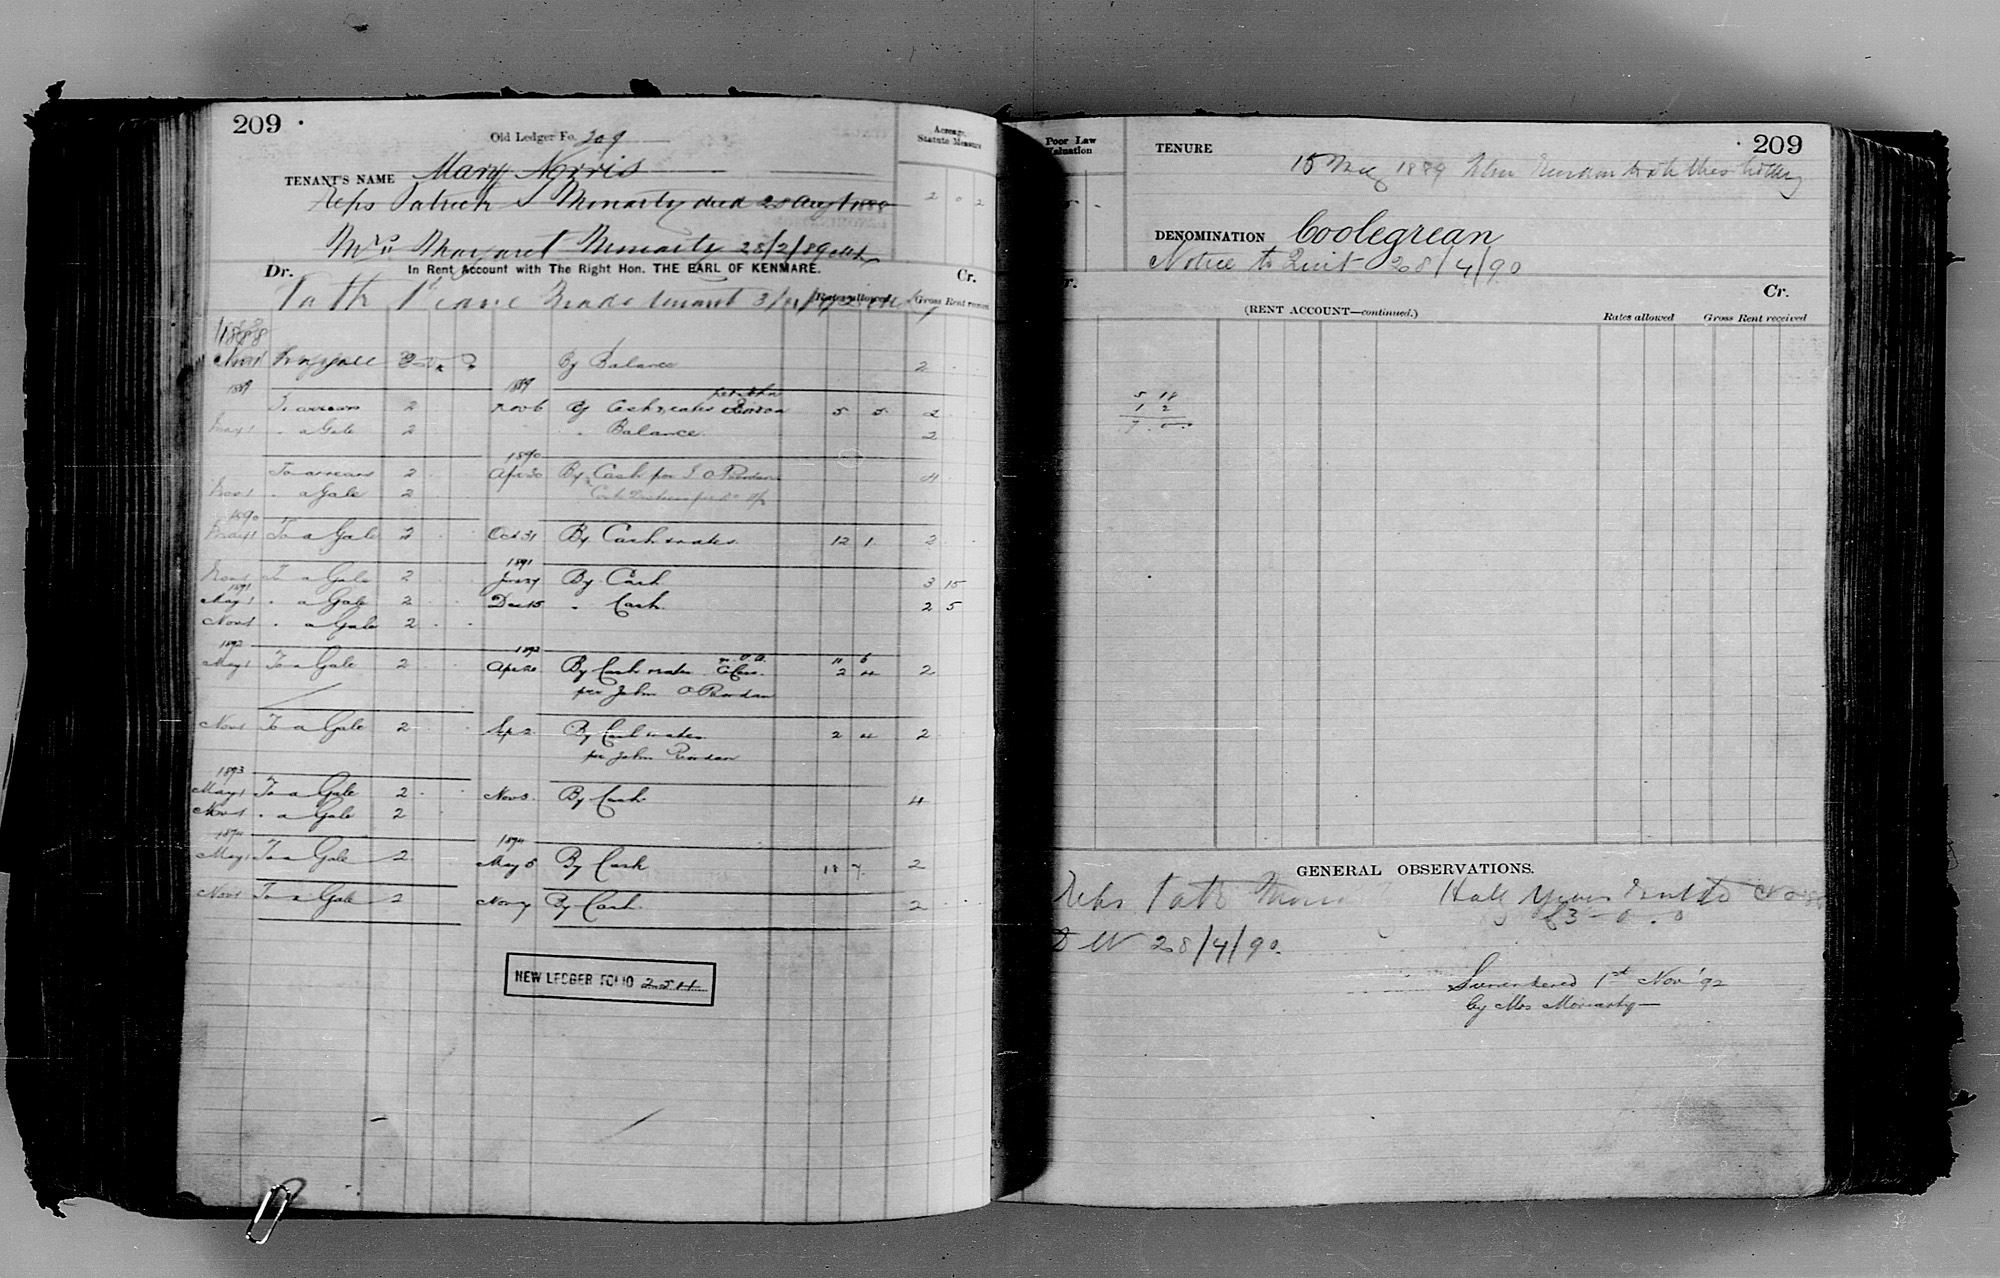 209
Old Ledger Fo. 209
Acreage,
Statute Measure
TENANT'S NAME Mary Norris
Reps Patrick Moriarty died 28 Aug 1888
2 0 2
Mrs Margaret Moriarty 28/2/89
Dr. In Rent Account with The Right Hon. THE EARL OF KENMARE. Cr.
Rates allowed Gross Rent received
1888
Nov 1 By Balance 2
1889 1889
To arrears 2 Nov 6 By Cash & rates 5 5 2
May 1 " a Gale 2 " Balance 2
1890
To arrears 2 Apr 30 By Cash per J O Riordan 4
Nov 1 " a Gale 2
1890
May 1 To a Gale 2 Oct 31 By Cash & rates 12 1 2
1891
Nov 1 To a Gale 2 By Cash 3 15
1891
May 1 " a Gale 2 Dec 15 " Cash 2 5
Nov 1 " a Gale 2
1892 1892 11 6
May 1 To a Gale 2 Apr 20 By Cash & rates 2 4 2
per John O Riordan
Nov 1 To a Gale 2 Sep 2 By Cash & rates 2 4 2
per John Riordan
1893
May 1 To a Gale 2 Nov 3 By Cash 4
Nov 1 " a Gale 2
1894 1894
May 1 To a Gale 2 May 5 By Cash 18 7 2
Nov 1 To a Gale 2 Nov 7 By Cash 2
NEW LEDGER FOLIO 254
Poor Law
Valuation
TENURE
209
15 May 1889 John Riordan
DENOMINATION Coolegrean
Notice to Quit 28/4/90
Dr. Cr.
(RENT ACCOUNT—continued.) Rates allowed Gross Rent received
5 18
1 2
7 0 0
GENERAL OBSERVATIONS.
Reps Patk Half Years Rent to
£3 - 0 . 0
28/4/90.
Surrendered 1st Nov '92
by Mrs Moriarty